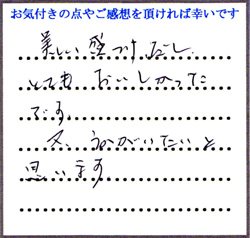 お気付きの点やご感想を頂ければ幸いです
美しい盛つけだし、
とても おいしかった
です。
又、うかがいたいと
思います